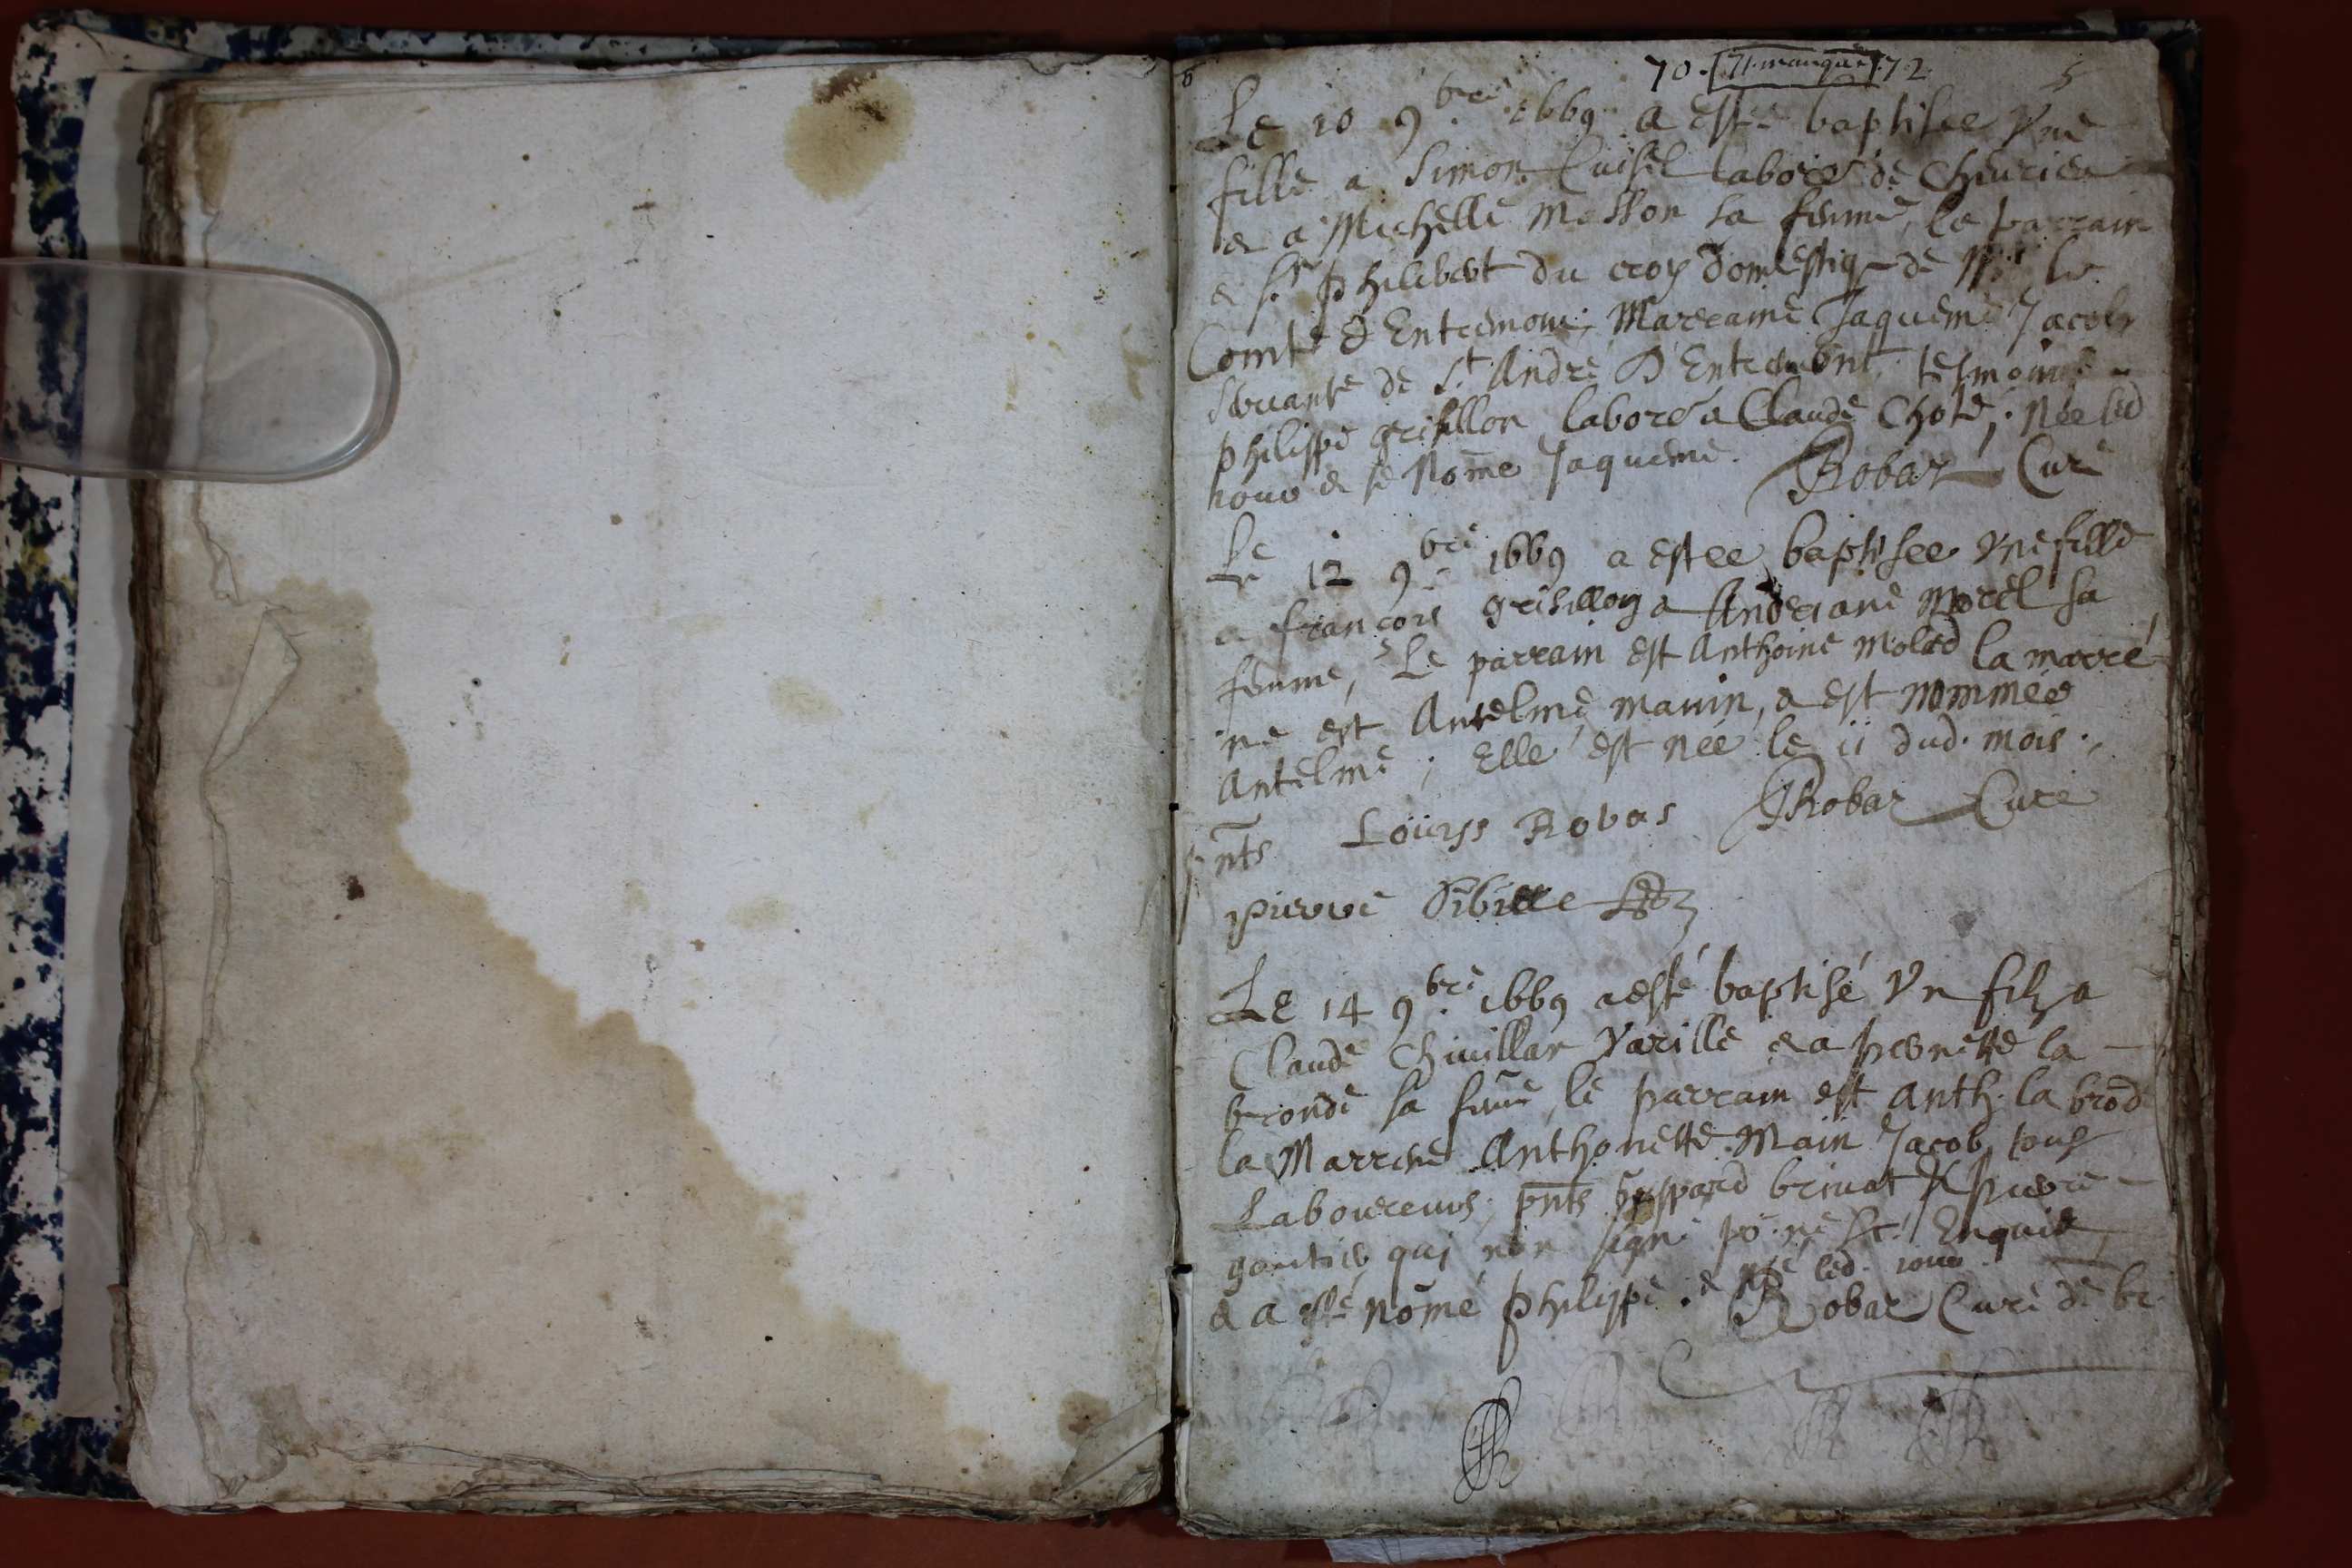 70. [71. manque] 72. 5
Le 10 9bre 1669 a esté baptisee Vne
fille a Simon Cuisel labore de
& a Michelle Masson sa femme, le parrain
e Sr Philibert du croy domestiq de Mr le
Comte d'Entremont; Marraine Jaqueme Jacob
servante de St André D'Entremont, tesmoins
philippe grisillon labore & Claude Chote; Née led
nomme Jaqueme. Robar Curé
Le 12 9bre 1669 a estee baptisee Vne fille
a francois grisillon & Anderiane Morel sa
femme, Le parrain est Anthoine Molard la marre
ne est Antelme manin, & est nommée
Antelme; Elle est née le ii dud. mois.
pnts Louys Robas Robar Curé
pierre Sibille
Le 14 9bre 1669 a esté baptisé Vn filz a
Claude Chivillar Varille & a pernette la
bronde sa feme, le parrain est Anth. la brod
la Marrene Anthonette Main Jacob, tous
Laboureurs; pnts Gaspard brinat & pierre
gontier qui non signé po. ne sc. Enquis,
& a esté nomé philippe. & né led. iour.
Robar Curé de br.